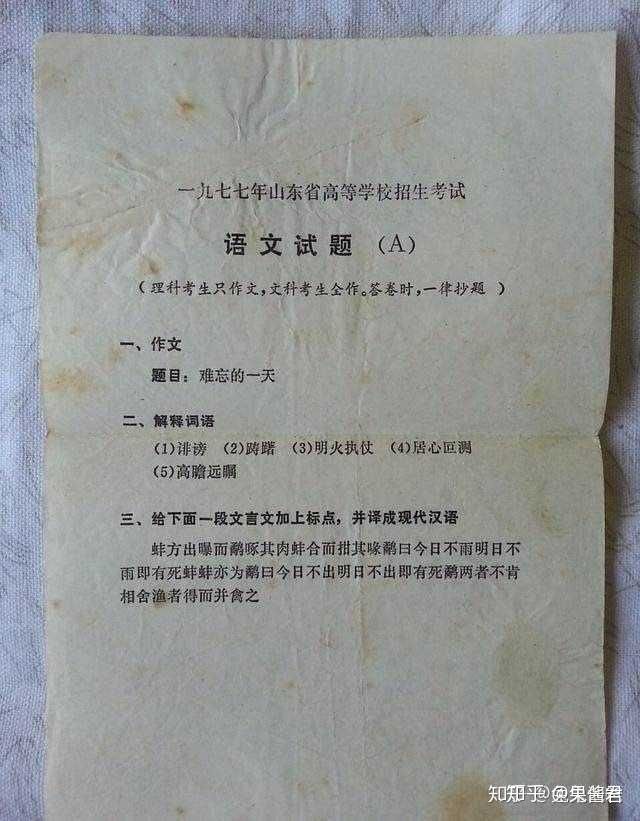 一九七七年山东省高等学校招生考试
语文试题 (A)
(理科考生只作文,文科考生全作。答卷时,一律抄题)
一、作文
题目:难忘的一天
二、解释词语
(1)诽谤 (2)踌躇 (3)明火执仗 (4)居心叵测
(5)高瞻远瞩
三、给下面一段文言文加上标点,并译成现代汉语
蚌方出曝而鹬啄其肉蚌合而拑其喙鹬曰今日不雨明日不
雨即有死蚌蚌亦为鹬曰今日不出明日不出即有死鹬两者不肯
相舍渔者得而并禽之
知乎